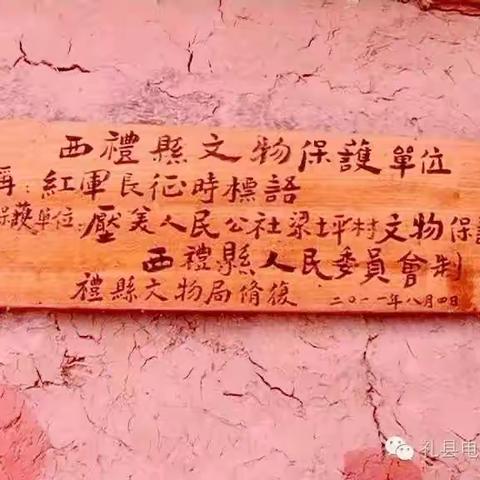 西禮縣文物保護單位
稱:紅軍長征時標語
保護單位:壓美人民公社梁坪村文物保護
西禮縣人民委員會制
禮縣文物局脩復 二〇一一年八月四日
礼县电